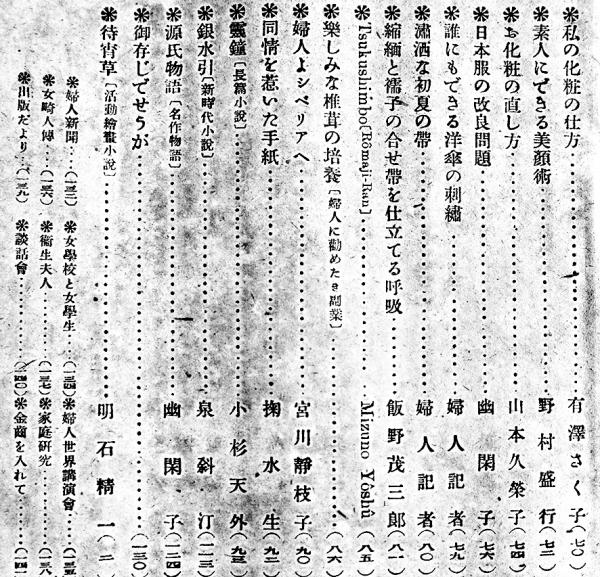 ❋私の化粧の仕方……有澤さく子(七〇)
❋素人にできる美顏術……野村盛行(七二)
❋お化粧の直し方……山本久榮子(七四)
❋日本服の改良問題……幽閑子(七六)
❋誰にもできる洋傘の刺繡……婦人記者(七九)
❋瀟洒な初夏の帶……婦人記者(八〇)
❋縮緬と繻子の合せ帶を仕立てる呼吸……飯野茂三郎(八一)
❋Tsukushimbo[Rōmaji-Ran]……Mizuno Yōshū(八五)
❋樂しみな椎茸の培養[婦人に勸めたき副業]……(八六)
❋婦人よシベリアへ……宮川靜枝子(九〇)
❋同情を惹いた手紙……掬水生(九二)
❋靈鐘[長篇小說]……小杉天外(九三)
❋銀水引[新時代小說]……泉斜汀(一一三)
❋源氏物語[名作物語]……幽閑子(一二四)
❋御存じでせうが……(一三〇)
❋待宵草[活動繪話小說]……明石精一(二)
❋婦人新聞……(一三二)❋女學校と女學生……(一三四)❋婦人世界講演會……(一三五)
❋女畸人傳……(一三六)❋衞生夫人……(一三七)❋家庭研究……(一三八)
❋出版だより……(一三九)❋談話會……(一四〇)❋金齒を入れて……(一四一